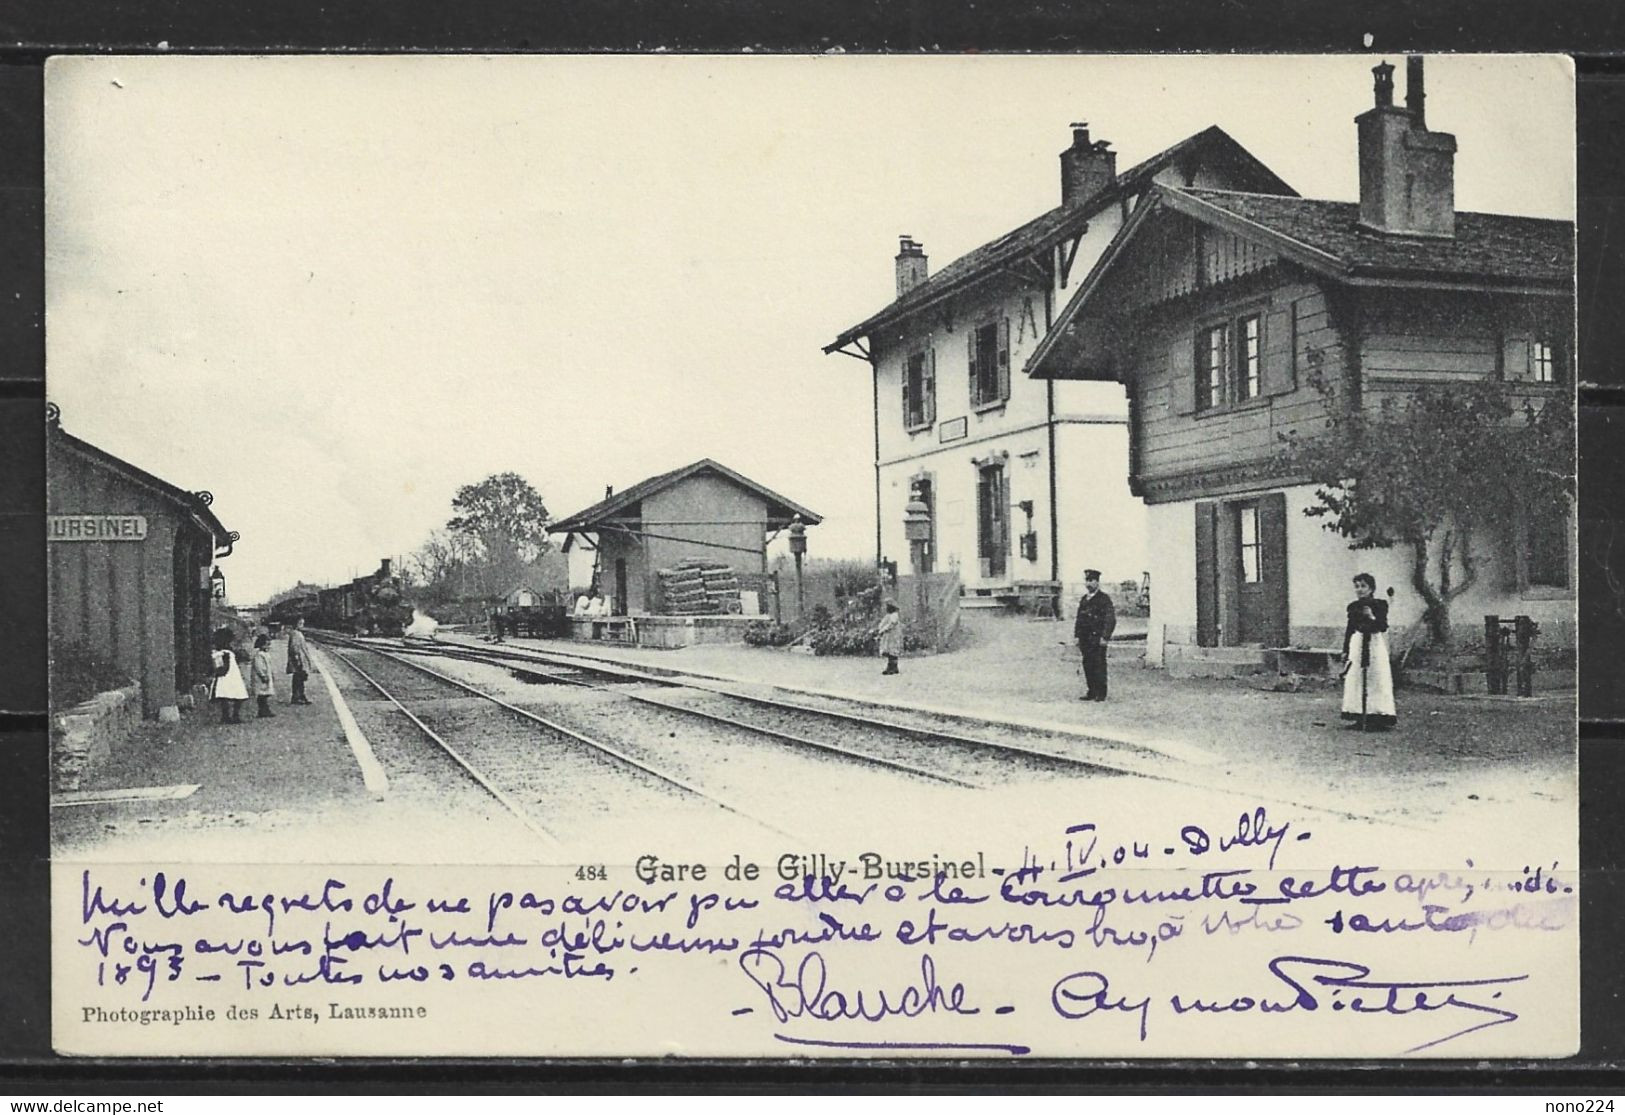 URSINEL
484 Gare de Gilly-Bursinel
4. IV. 04 - Dully -
Mille regrets de ne pas avoir pu aller à la Couronnette cette après, midi.
Nous avons fait une délicieuse fondue et avons bu, à votre santé, du
1893 - Toutes nos amitiés.
- Blanche -
Photographie des Arts, Lausanne
nono224